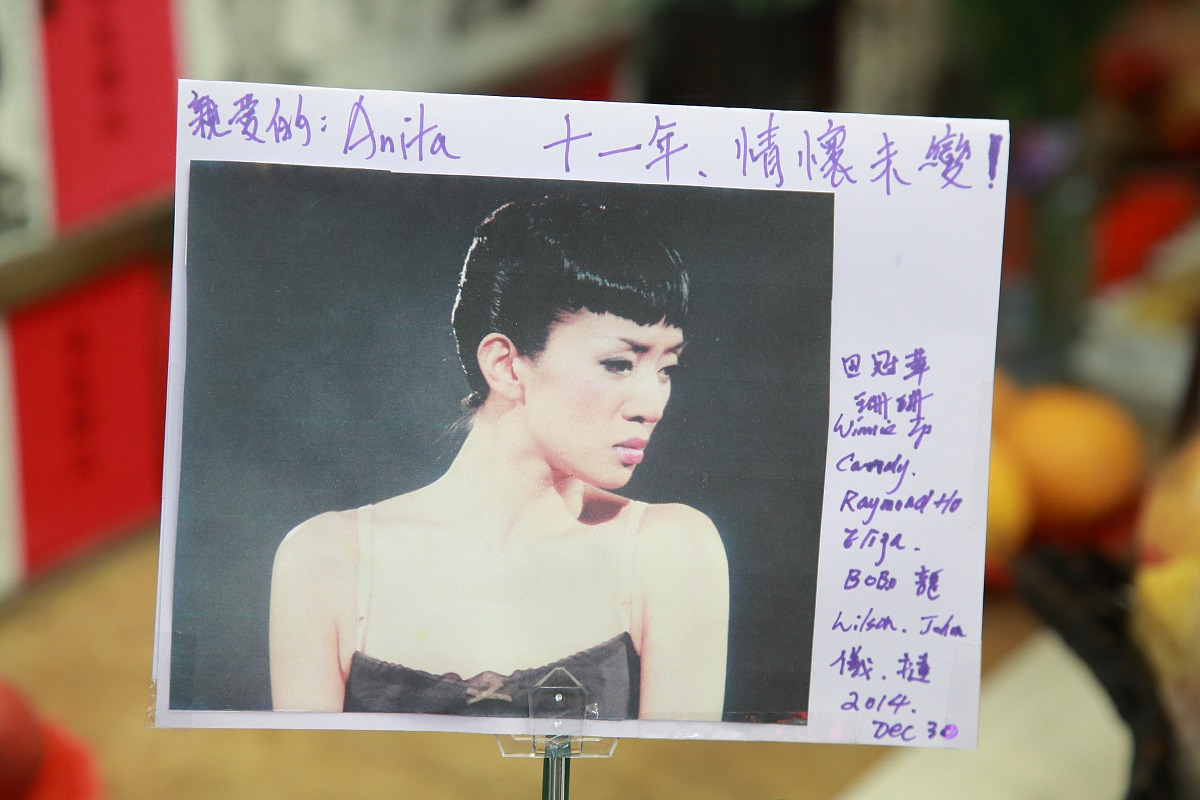 親愛的: Anita 十一年、情懷未變!
田冠華
珊珊
Winnie Ip
Candy.
Raymond Ho
Eliza.
BoBo 龍
Wilson. John
儀.撻
2014.
Dec 30